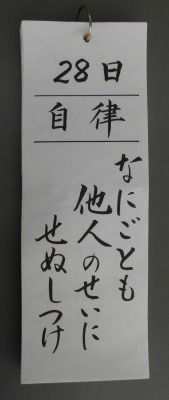 28日
自律
なにごとも
他人のせいに
せぬしつけ